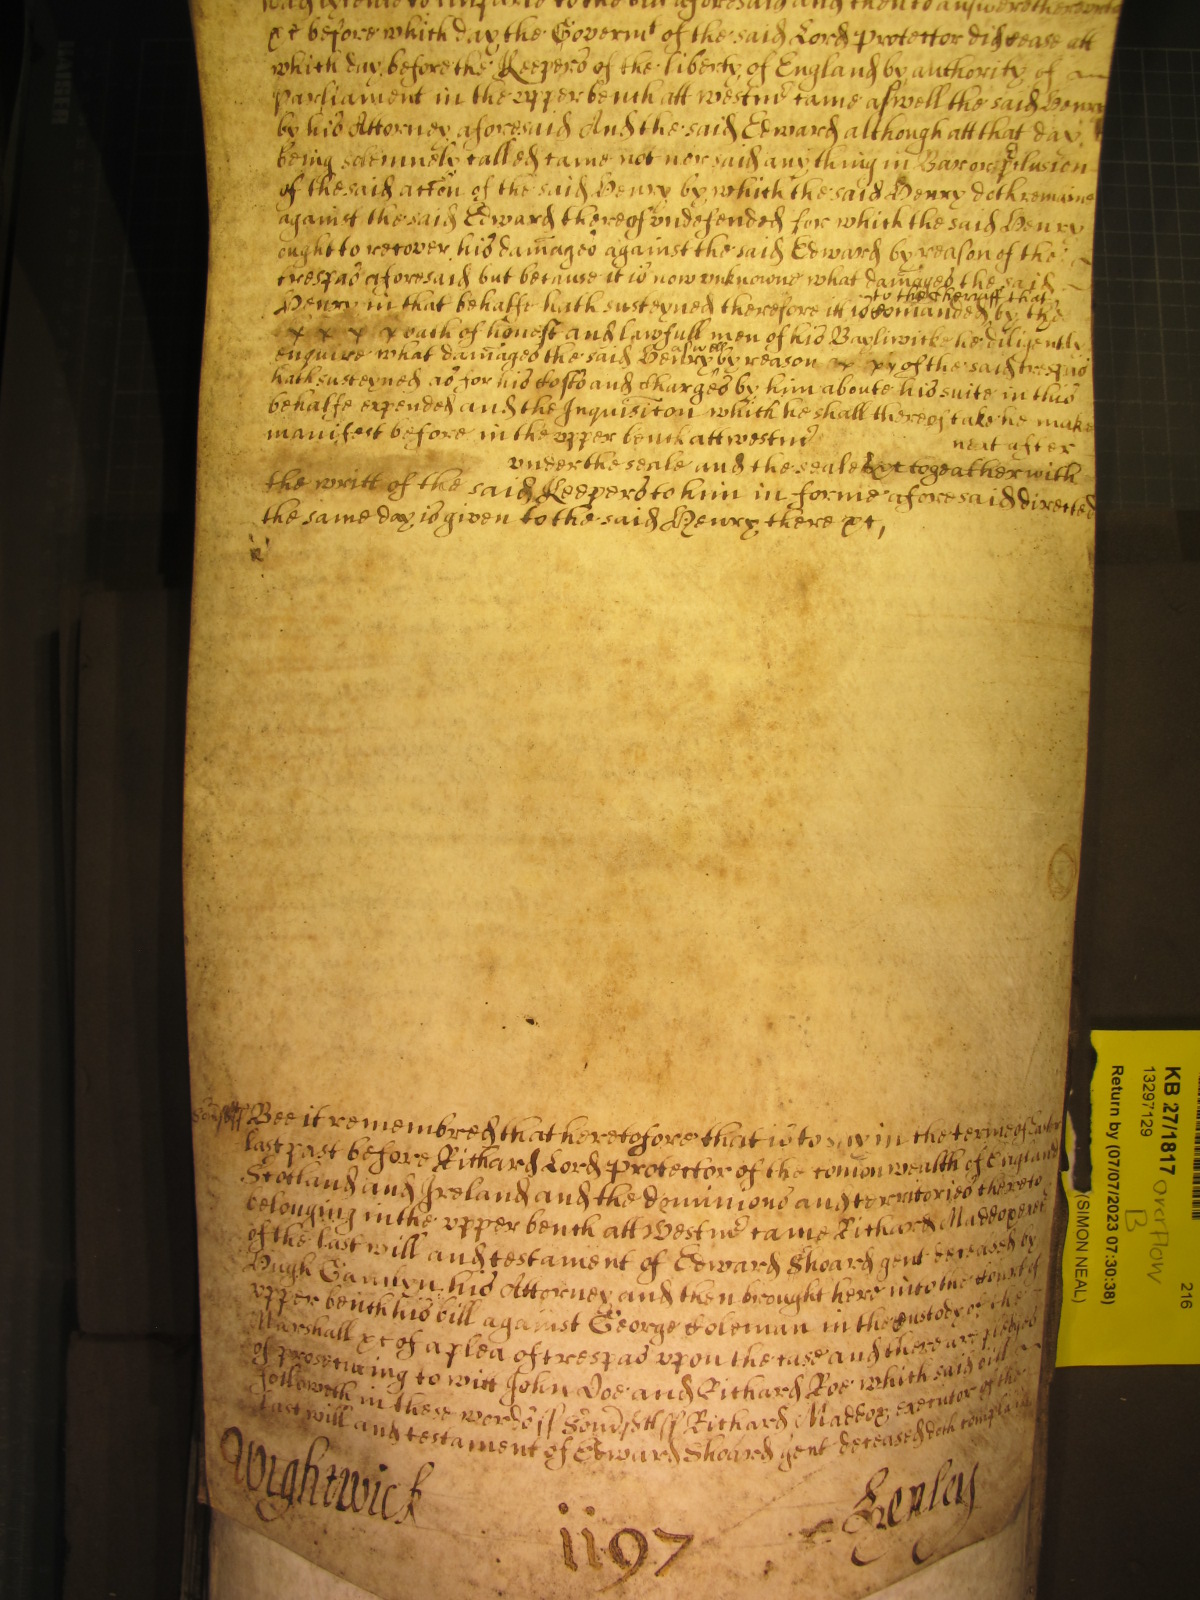 &c before which day the Governmt of the said Lord Protector did cease att
which day before the Keepers of the liberty of England by authority of
Parliament in the upper bench att Westmr came aswell the said Henry
by his Attorney aforesaid And the said Edward although att that day
being solemnely called came not nor said any thing in Bar or p̱clusion
of the said accōn of the said Henry by which the said Henry doth remaine
against the said Edward thereof vndefended for which the said Henry
ought to recover his damages against the said Edward by reason of the
trespas aforesaid but because it is now vnknowne what damages the said
to the sheriff that
Henry in that behalfe hath susteyned therefore it is comanded by the
x x x x oath of honest and lawfull men of his Bayliwicke he diligently
enquire what damages the said Henry aswell by reason x x of the said trespas
hath susteyned as for his Costs and Charges by him aboute his suite in this
behalfe expended and the Inquisicon which he shall thereof take he make
manifest before in the vpper bench att westmr next after
vnder the seale and the seales &c togeather with
the writt of the said Keepers to him in forme aforesaid directed
the same day is given to the said Henry there &c,
Bee it remembred that heretofore that is to say in the terme of Easter
last past before Richard Lord Protector of the comonwealth of England
Scotland and Ireland and the dominions and territories thereto
belonging in the vpper bench att Westmr came Richard Maddox
of the last will and testament of Edward Shoard gent deceased by
Hugh his Attorney and then brought here into the Court of
vpper bench his bill against George Coleman in the custody of the
Marshall &c of a plea of trespas vpon the case and there are pledges
of prosecuting to witt John Doe and Richard Roe which said bill
followeth in these words ss Somsett ss Richard Maddox executor of the
last will and testament of Edward Shoard gent deceased doth complaine
Wightwick
Henley
1197
KAISER
KB 27/1817 overflow
B
13297129
Return by (07/07/2023 07:30:38)
(SIMON NEAL)
216